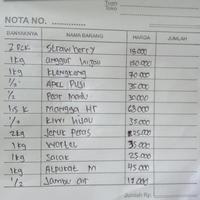 Tuan
Toko
NOTA NO.
BANYAKNYA NAMA BARANG HARGA JUMLAH
2 Pck Strawberry 18.000
1 kg Anggur Hijau 130.000
1 kg Klengkeng 40.000
1/2 Apel Fuji 35.000
1/2 Pear Madu 30.000
1.5 K Mangga HR 63.000
1/2 Kiwi Hijau 35.000
2 kg Jeruk Peras 25.000
1 kg Wortel 35.000
1 kg Salak 25.000
1 kg Alpukat M 45.000
1/2 Jambu air
Jumlah Rp.